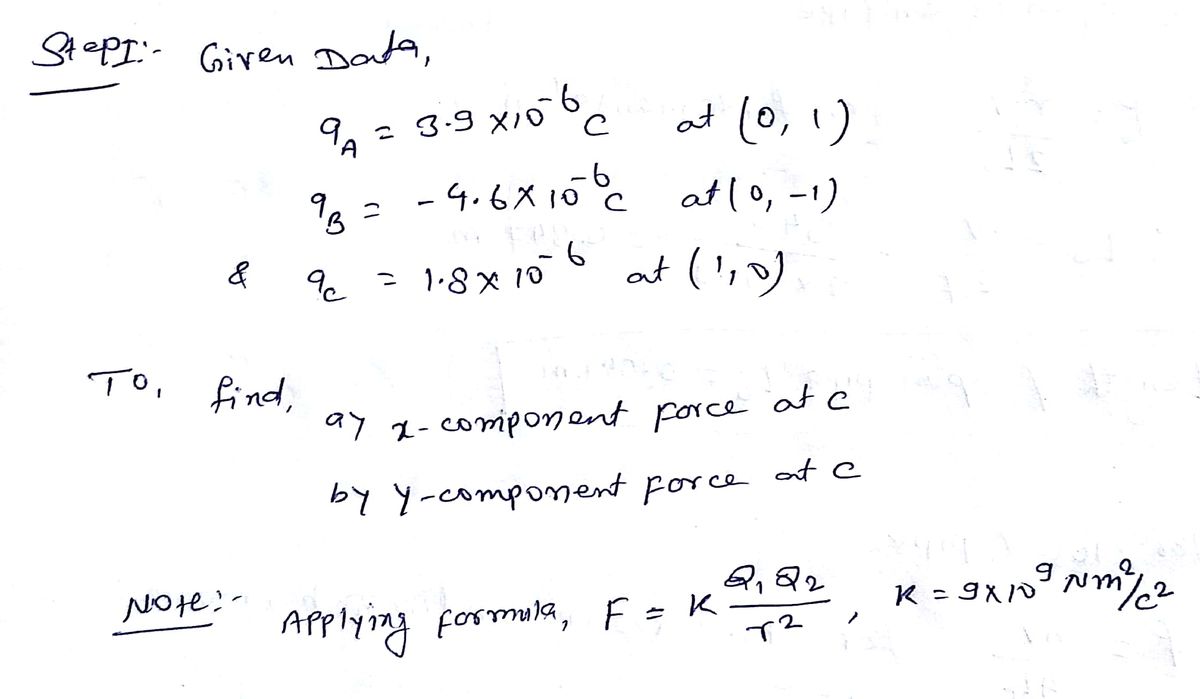 StepI:- Given Data,
q_A = 3.9 × 10^-6 C at (0, 1)
q_B = - 4.6 × 10^-6 C at (0, -1)
& q_C = 1.8 × 10^-6 at (1, 0)
To, find,
a) x-component force at C
b) y-component force at C
Note:- Applying formula, F = K Q1 Q2 / r^2 , K = 9×10^9 Nm^2/C^2